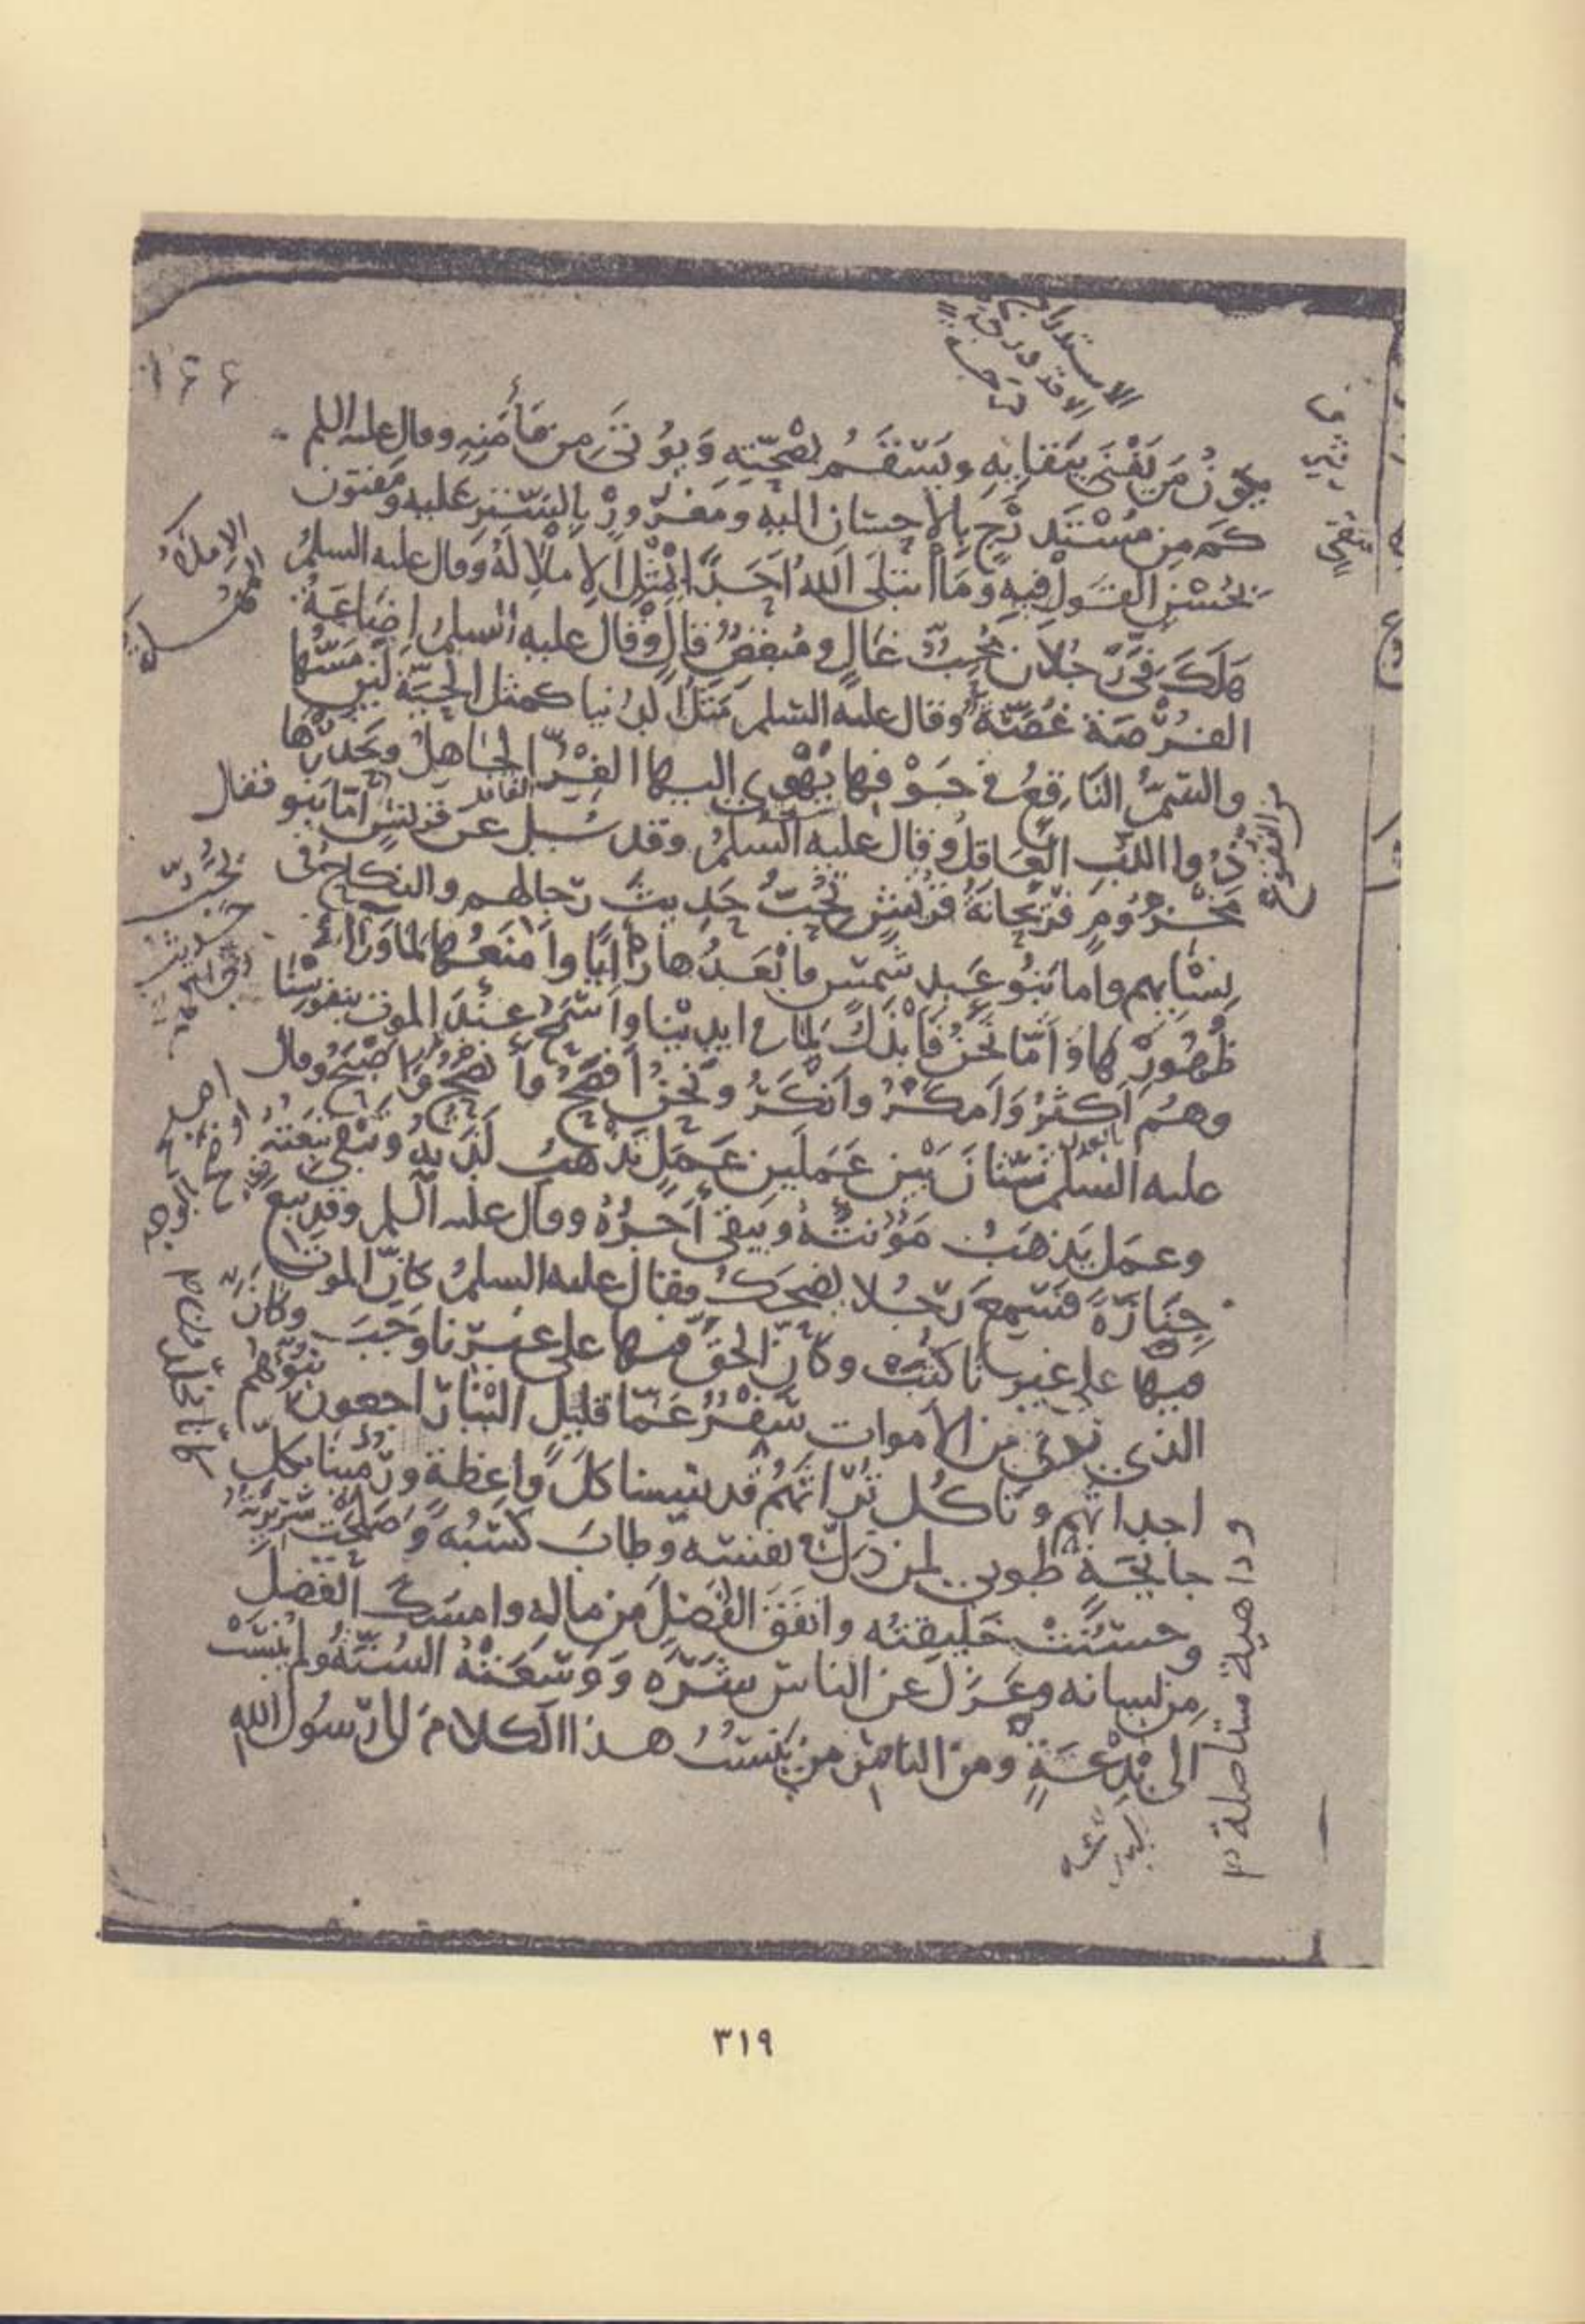 ١٤٤
يكون من يفنى ببقايه ويسقم بصحته ويؤتى من مأمنه وقال عليه السلم
كم من مستدرج بالإحسان اليه ومغرور بالستر عليه ومفتون
بحسن القول فيه وما ابتلى الله احدا بمثل الاملا له وقال عليه السلم
هلك في رجلان محب غال ومبغض قال وقال عليه السلم اضاعة
الفرصة غصة وقال عليه السلم مثل الدنيا كمثل الحية لين مسها
والسم الناقع في جوفها يهوى اليها الغر الجاهل ويحذرها
ذوا اللب العاقل وقال عليه السلم وقد سيل عن قريش اما بنو فقال
مخزوم فريحانة قريش تحب حديث رجالهم والنكاح في
نسايهم واما بنو عبد شمس فابعدها رأيا وامنعها لما ورا
ظهورها واما نحن فابذل لما في ايدينا واسمح عند الموت بنفوسنا
وهم اكثر وامكر وانكر ونحن افصح وانصح واصبح وقال
عليه السلم شتان بين عملين عمل تذهب لذته وتبقى تبعته
وعمل يذهب مؤنته ويبقى أجره وقال عليه السلم وقد تبع
جنازة فسمع رجلا يضحك فقال عليه السلم كان الموت
فيها على غيرنا كتب وكان الحق فيها على غيرنا وجب وكان
الذي نرى من الاموات سفر عما قليل الينا راجعون نبوئهم
اجداثهم وناكل تراثهم قد نسينا كل واعظة ورمينا بكل
جايحة طوبى لمن ذل في نفسه وطاب كسبه وصلحت سريرته
وحسنت خليقته وانفق الفضل من ماله وامسك الفضل
من لسانه وعزل عن الناس شره ووسعته السنة ولم ينسب
الى بدعة ومن الناس من ينسب هذا الكلام الى رسول الله
وداهية مستاصلة
٣١٩